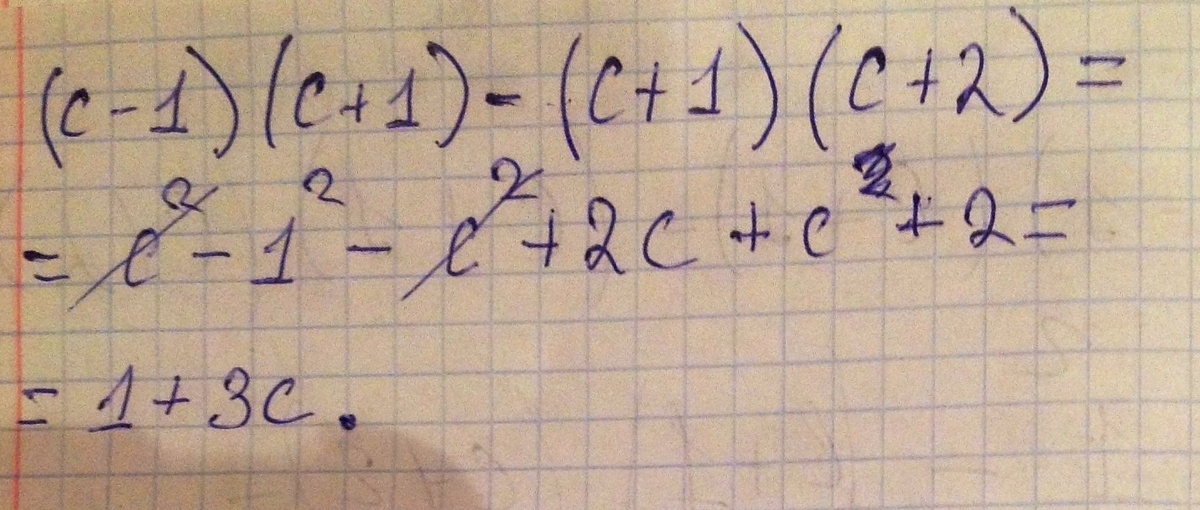 (c-1)(c+1)-(c+1)(c+2)=
=c²-1²-c²+2c+c+2=
=1+3c.